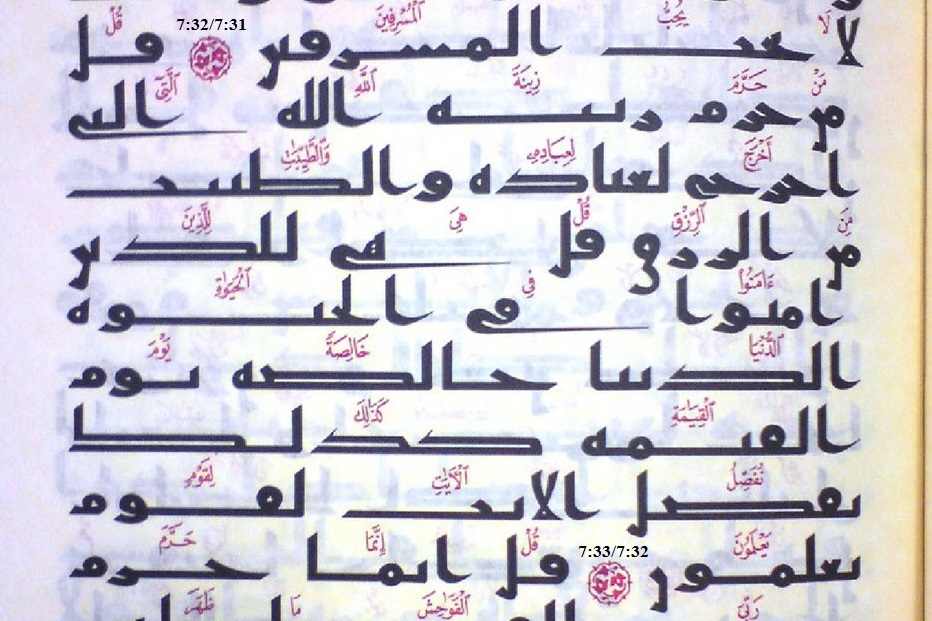 لَا يُحِبُّ ٱلْمُسْرِفِينَ 7:32/7:31 قُلْ
لا يحب المسرفين قل
مَنْ حَرَّمَ زِينَةَ ٱللَّهِ ٱلَّتِىٓ
من حرم زينه الله التي
أَخْرَجَ لِعِبَادِهِۦ وَٱلطَّيِّبَٰتِ
اخرج لعباده والطيبت
مِنَ ٱلرِّزْقِ قُلْ هِىَ لِلَّذِينَ
من الرزق قل هي للذين
ءَامَنُوا۟ فِى ٱلْحَيَوٰةِ
امنوا في الحيوه
ٱلدُّنْيَا خَالِصَةً يَوْمَ
الدنيا خالصه يوم
ٱلْقِيَٰمَةِ كَذَٰلِكَ
القيمه كذلك
نُفَصِّلُ ٱلْءَايَٰتِ لِقَوْمٍ
نفصل الايت لقوم
يَعْلَمُونَ 7:33/7:32 قُلْ إِنَّمَا حَرَّمَ
يعلمون قل انما حرم
رَبِّىَ ٱلْفَوَٰحِشَ مَا ظَهَرَ